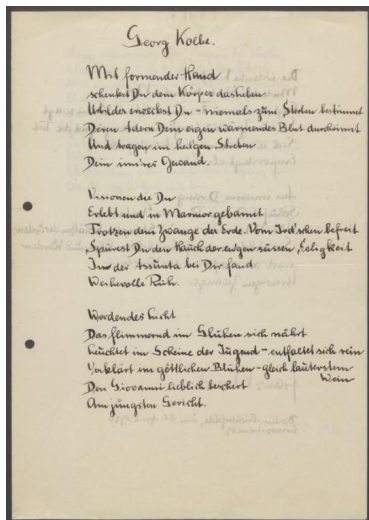 Georg Kolbe.
Mit formender Hand
schenkst Du dem Körper das Leben
Bilder erweckst Du – niemals zum Sterben bestimmt
Deren Adern Dein eigen wärmendes Blut durchrinnt
Und tragen im heilgen Streben
Dein inn'res Gewand.
Visionen die Du
Erlebt und in Marmor gebannt
Trotzen dem Zwange der Erde. Vom Ird'schen befreit
Spürest Du den Hauch der ewgen süssen Seligkeit
In der Assunta bei Dir fand
Weihevolle Ruh.
Werdendes Licht
Das flimmernd im Glühen sich nährt
Leuchtet im Scheine der Jugend – entfaltet sich rein
Verklärt im göttlichen Blühen – gleich lauterstem
Wein
Den Giovanni lieblich beschert
Am jüngsten Gericht.